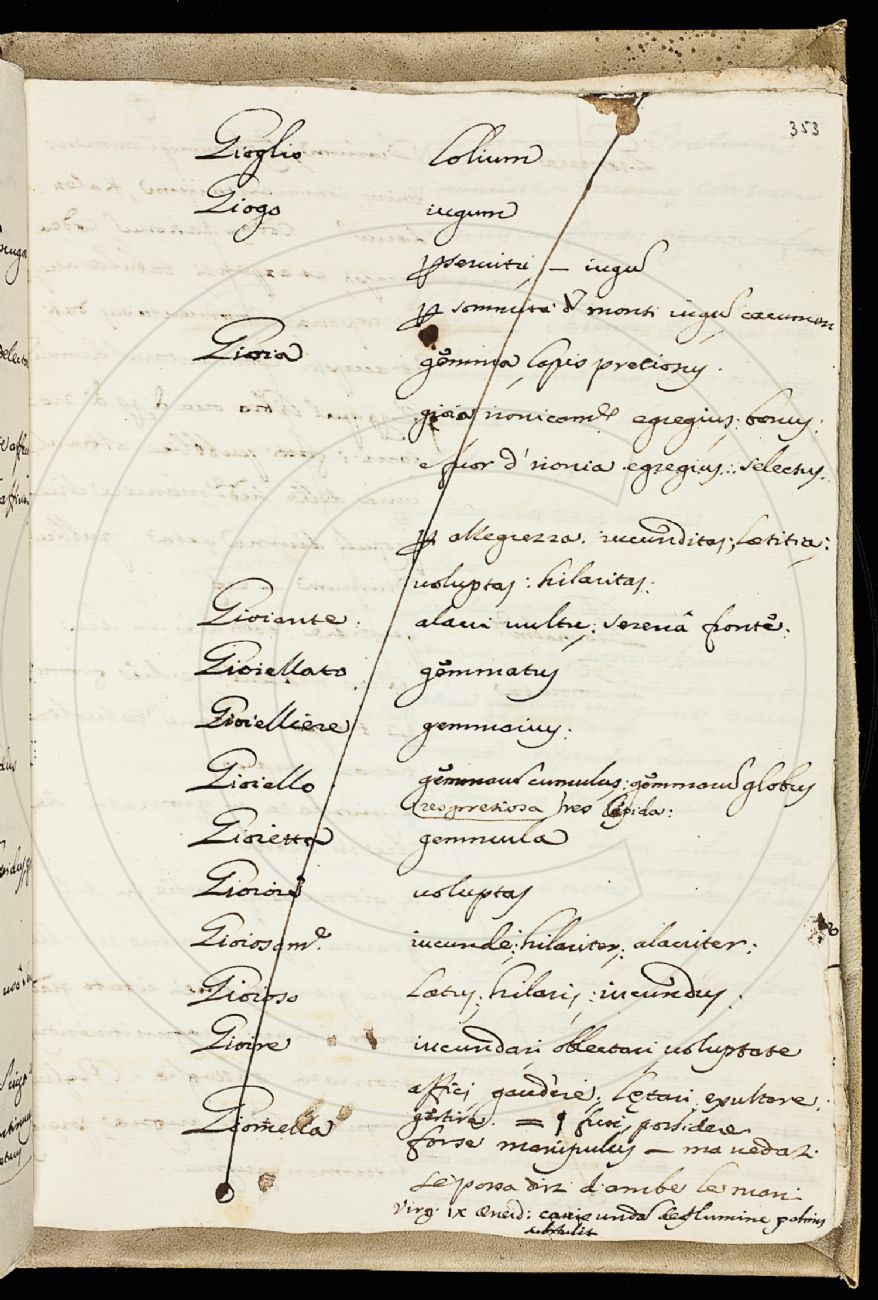 353
Gioglio lolium
Giogo iugum
p servitù — iugū
p sommità di monti iugū cacumen
Gioia gemma lapis pretiosus.
gioia ironicamte egregius; bonus:
e fuor d'ironia egregius: selectus.
p allegrezza. iucunditas; lætitia:
voluptas: hilaritas:
Gioiante. alacri vultu; serenâ fronte.
Gioiellato gemmatus
Gioielliere gemmarius:
Gioiello gemmarū cumulus; gemmarū globus
(res pretiosa) res lepida:
Gioietta gemmula
voluptas
Gioiosamte. iucunde; hilariter; alacriter;
Gioioso Lætus; hilaris; iucundus.
Gioire iucundari oblectari voluptate
affici gaudere; lętari exultare;
gestire. =
Giomella forse manipulus — ma veda
se possa dirsi d'ambe le mani
Virg. IX Æneid: undā de flumine palmis
sustulit